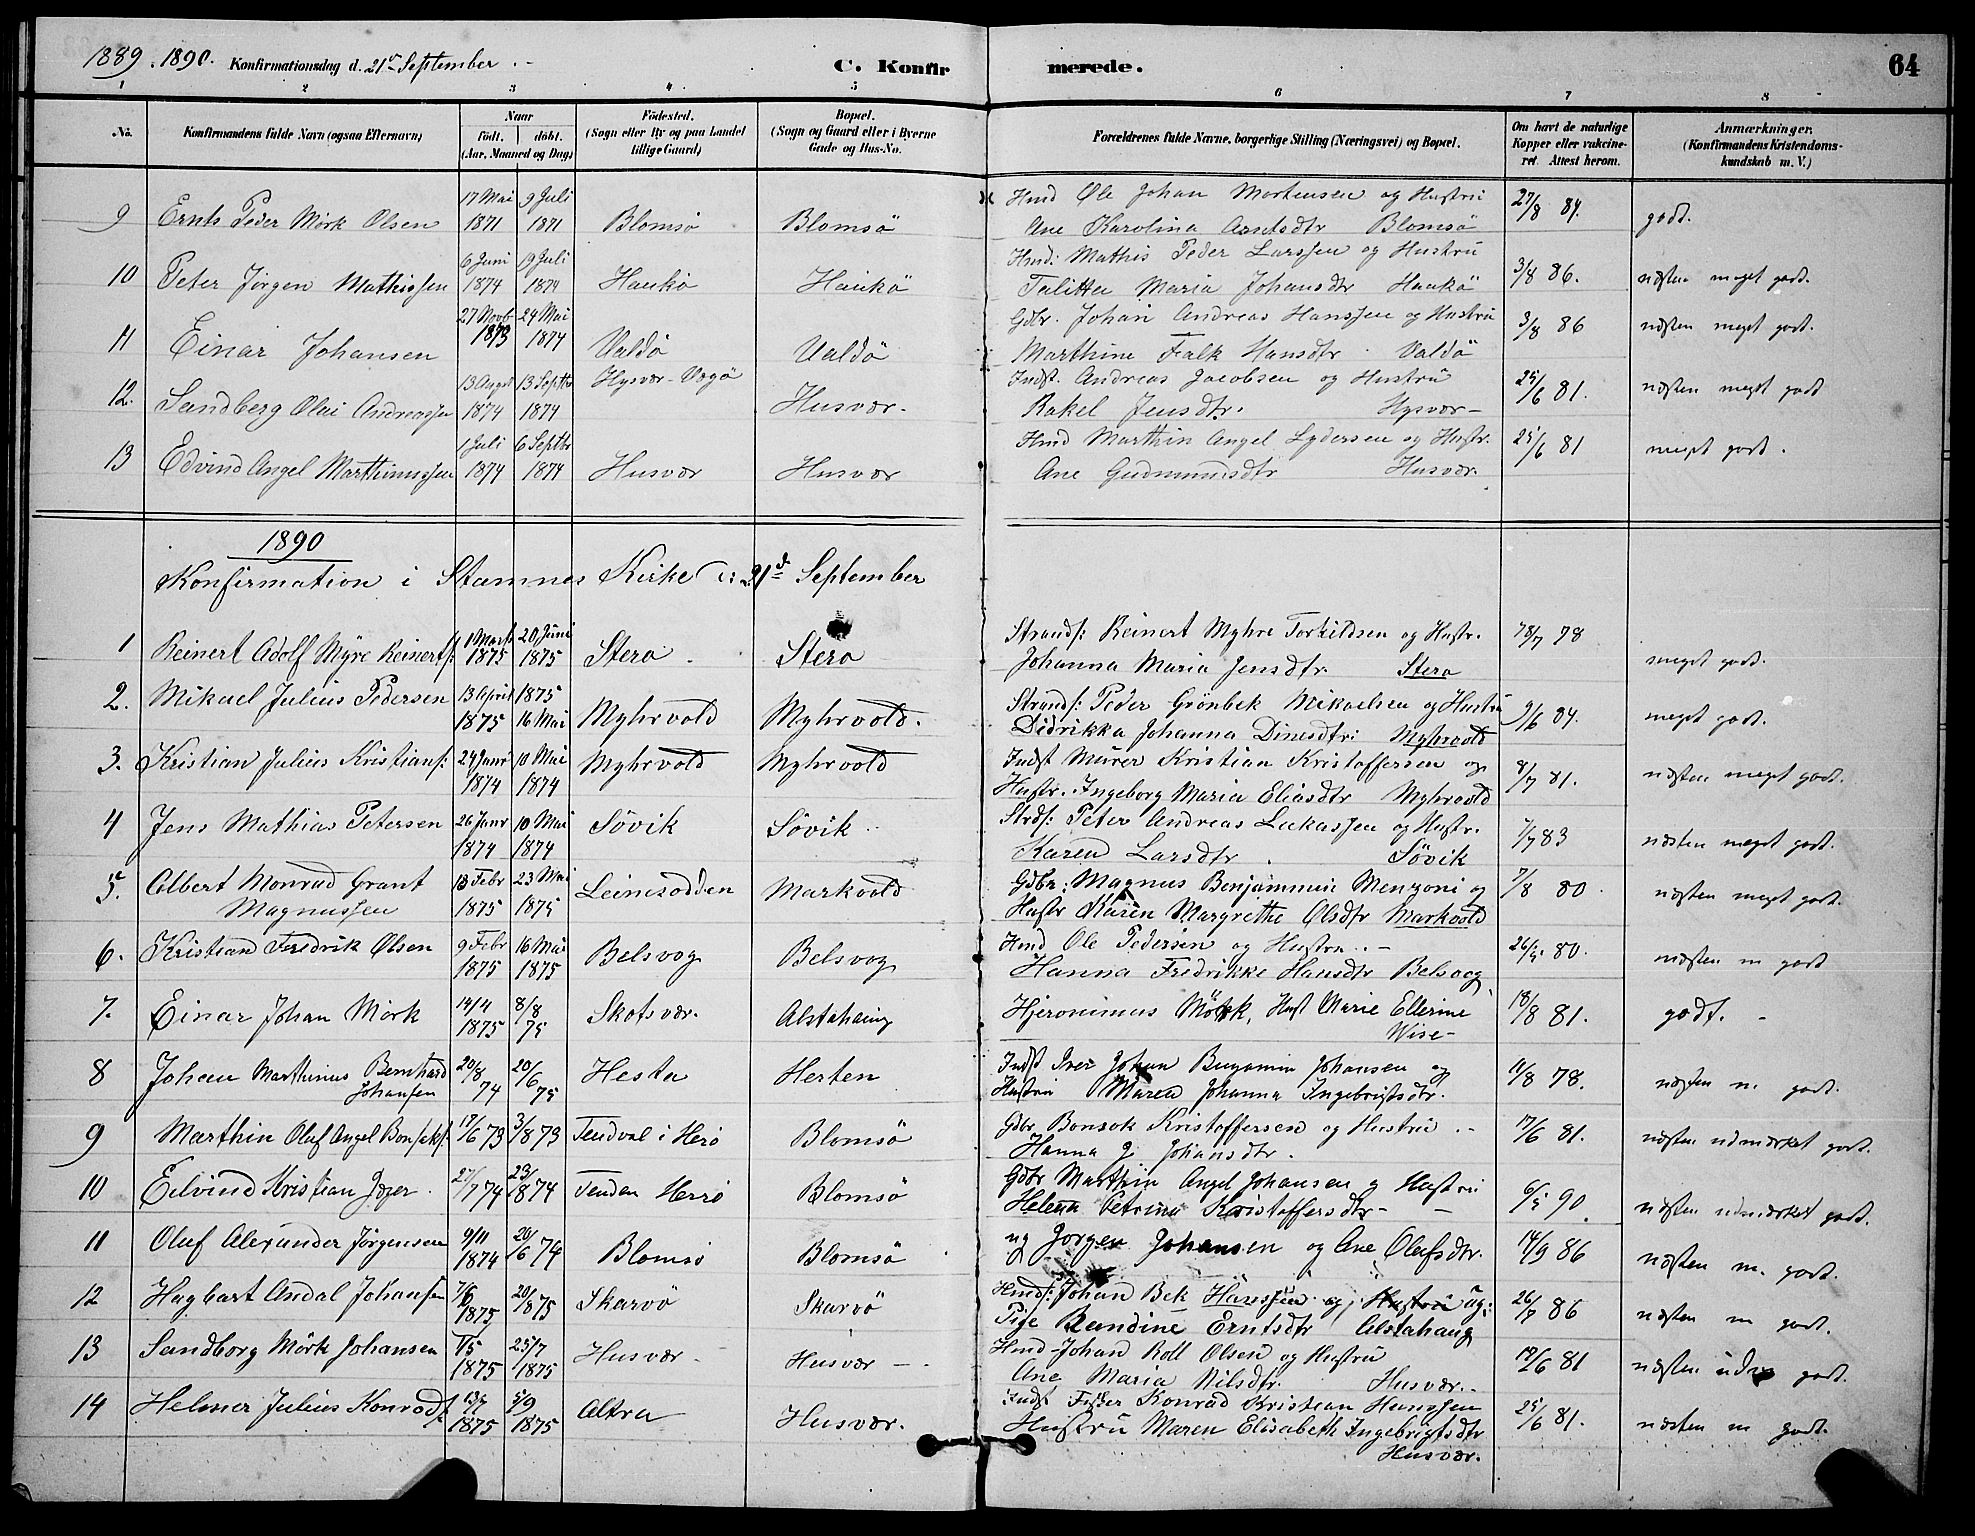 1889. 1890. Konfirmationsdag d. 21de September.
C. Konfirmerede.
64
1 2 3 4 5 6 7 8
No.
Konfirmandens fulde Navn (ogsaa Efternavn)
Naar
født. døbt.
(Aar, Maaned og Dag)
Födested.
(Sogn eller By og paa Landet tillige Gaard)
Bopæl.
(Sogn og Gaard eller i Byerne Gade og Hus-No.
Forældrenes fulde Navne, borgerlige Stilling (Næringsvei) og Bopæl.
Om havt de naturlige Kopper eller vakcineret. Attest herom.
Anmærkninger.
(Konfirmandens Kristendomskundskab m. V.)
9 Ernts Peder Mörk Olsen 17 Mai 1871 9 Juli 1871 Blomsö Blomsö Hmd Ole Johan Mortensen og Hustru
Ane Karolina Arntsdtr Blomsö 27/8 84. godt.
10 Peter Jörgen Mathissen 6 Juni 1874 19 Juli 1874 Haukö Haukö Hmd: Mathis Peder Larssen og Hustru
Talitta Maria Johansdtr Haukö 3/8 86. næsten meget godt.
11 Einar Johansen 27 Novb 1873 24 Mai 1874 Valdö Valdö Gdbr. Johan Andreas Hanssen og Hustru
Marthine Falk Hansdtr. Valdö 3/8 86 næsten meget godt.
12. Sandberg Olai Andreassen 13 Augst 1874 13 Septbr 1874 Hysvær-Vægö Husvær. Indst. Andreas Jacobsen og Hustru
Rakel Jensdtr. Hysvær- 25/6 81. næsten meget godt
13 Edvind Angel Marthinussen 1 Juli 1874 6 Septbr 1874 Husvær Husvær Hmd Marthin Angel Lydersen og Hustr.
Ane Gudmundsdtr Husvær. 25/6 81 meget godt.
1890
Konfirmation i Stamnes Kirke d: 21de September
1 Reinert Adolf Myre Reinerts: 1 Marts 1875 20 Juni 1875 Stero. Stero Strands: Reinert Myhre Torkildsen og Hustr.
Johanna Maria Jensdtr. Stero 78 meget godt.
2. Mikael Julius Pedersen 13 April 1875 1875 16 Mai Myhrvold Myhrvold. Strands: Peder Grönbek Mikaelsen og Hustru
Didrikka Johanna Dinesdtr: Myhrvold 9/6 84. meget godt.
3. Kristian Julius Kristians: 24 Janr 1874 10 Mai 1874 Myhrvold Myhrvold Indst Murer Kristian Kristoffersen og
Hustr. Ingeborg Maria Eliasdtr Myhrvold 8/7 81. næsten meget godt.
4 Jens Mathias Petersen 26 Janr 1874 10 Mai 1874 Sövik Sövik Strds: Peter Andreas Lukassen og Hustr.
Karen Larsdtr. Sövik 7/7 83 næsten meget godt.
5. Albert Monrad Grant
Magnussen 13 Febr 1875 23 Mai 1875 Leinesodden Markvold Gdbr: Magnus Benjammin Menzoni og
Hustr Karen Margrethe Olsdtr Markvold 7/8 80. næsten meget godt.
6. Kristian Fredrik Olsen 9 Febr 1875 16 Mai 1875 Belsvog Belsvog Hmd Ole Pedersen og Hustru.-
Hanna Fredrikke Hansdtr Belsvog 80. næsten m godt
7. Einar Johan Mörk 14/4 1875 8/8 75 Skotsvær. Alstahaug Hjeronimus Mörk, Hust Marie Ellerine
Wise- 18/8 81. godt.
8 Johan Marthinus Bernhard
Johansen 20/8 74 20/6 75 Hesta Herten Indst Iver Johan Benjamin Johansen og
Hustru Maren Johanna Ingebrigtsdtr. 11/8 78. næsten m. godt.
9 Marthin Oluf Angel Bonsaks: 17/6 73 3/8 73 Tendval i Herö Blomsö Gdbr Bonsok Kristoffersen og Hustru.-
Hanna J. Johansdtr. 17/6 81. næsten udmærket godt.
10 Eilvind Kristian Jæger. 27/7 74 23/8 74 Tenden Herrö Blomsö Gdbr Marthin Angel Johansen og Hustru
Helena Petrina Kristoffersdtr- 90. næsten udmærket godt.
11 Oluf Alexander Jörgensen 9/11 1874 20/6 74 Blomsö Blomsö ug Jörgen Johansen og Ane Olufsdtr. 14/9 86 næsten m. godt.
12 Hagbart Andal Johansen 7/6 1875 20/8 1875 Skarvö Skarvö Hmds: Johan Bek Hanssen og Hustru ug:
Pige Randine Erntsdtr Alstahaug 86 næsten m godt.
13 Sandborg Mörk Johansen 1/5 1875 25/7 1875 Husvær- Husvær- Hmd Johan Roll Olsen og Hustru
Ane Maria Nilsdtr. Husvær.- 19/6 81 næsten udm godt.
14 Helmer Julius Konrads 13/7 1875 5/9 1875 Altra Husvær. Indst Fisker Konrad Kristian Hanssen
Hustru Maren Elisabeth Ingebrigtsdtr
Husvær. 25/6 81. næsten m godt.